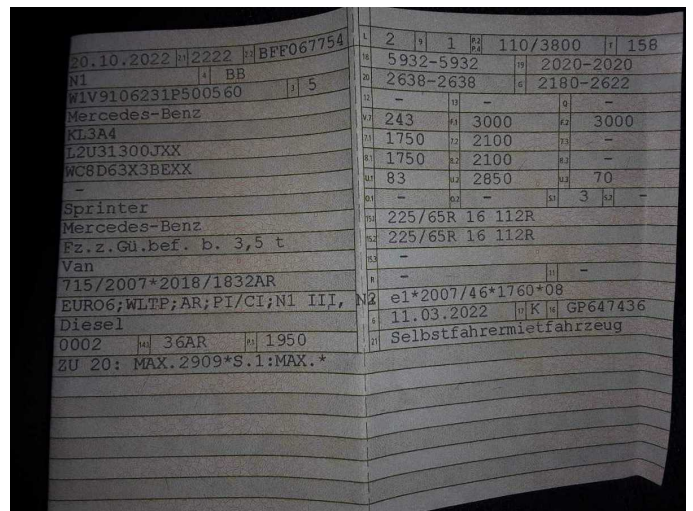 20.10.2022 2.1 2222 2.2 BFF067754
N1 4 BB
W1V9106231P500560 3 5
Mercedes-Benz
KL3A4
L2U31300JXX
WC8D63X3BEXX
–
Sprinter
Mercedes-Benz
Fz.z.Gü.bef. b. 3,5 t
Van
715/2007*2018/1832AR
EURO6;WLTP;AR;PI/CI;N1 III, N2
Diesel
0002 14.1 36AR P.1 1950
ZU 20: MAX.2909*S.1:MAX.*
L 2 9 1 P.2 P.4 110/3800 T 158
18 5932-5932 19 2020-2020
20 2638-2638 G 2180-2622
12 – 13 – Q –
V.7 243 F.1 3000 F.2 3000
7.1 1750 7.2 2100 7.3 –
8.1 1750 8.2 2100 8.3 –
U.1 83 U.2 2850 U.3 70
O.1 – O.2 – S.1 3 S.2 –
15.1 225/65R 16 112R
15.2 225/65R 16 112R
15.3 –
R – 11 –
K e1*2007/46*1760*08
6 11.03.2022 17 K 16 GP647436
21 Selbstfahrermietfahrzeug